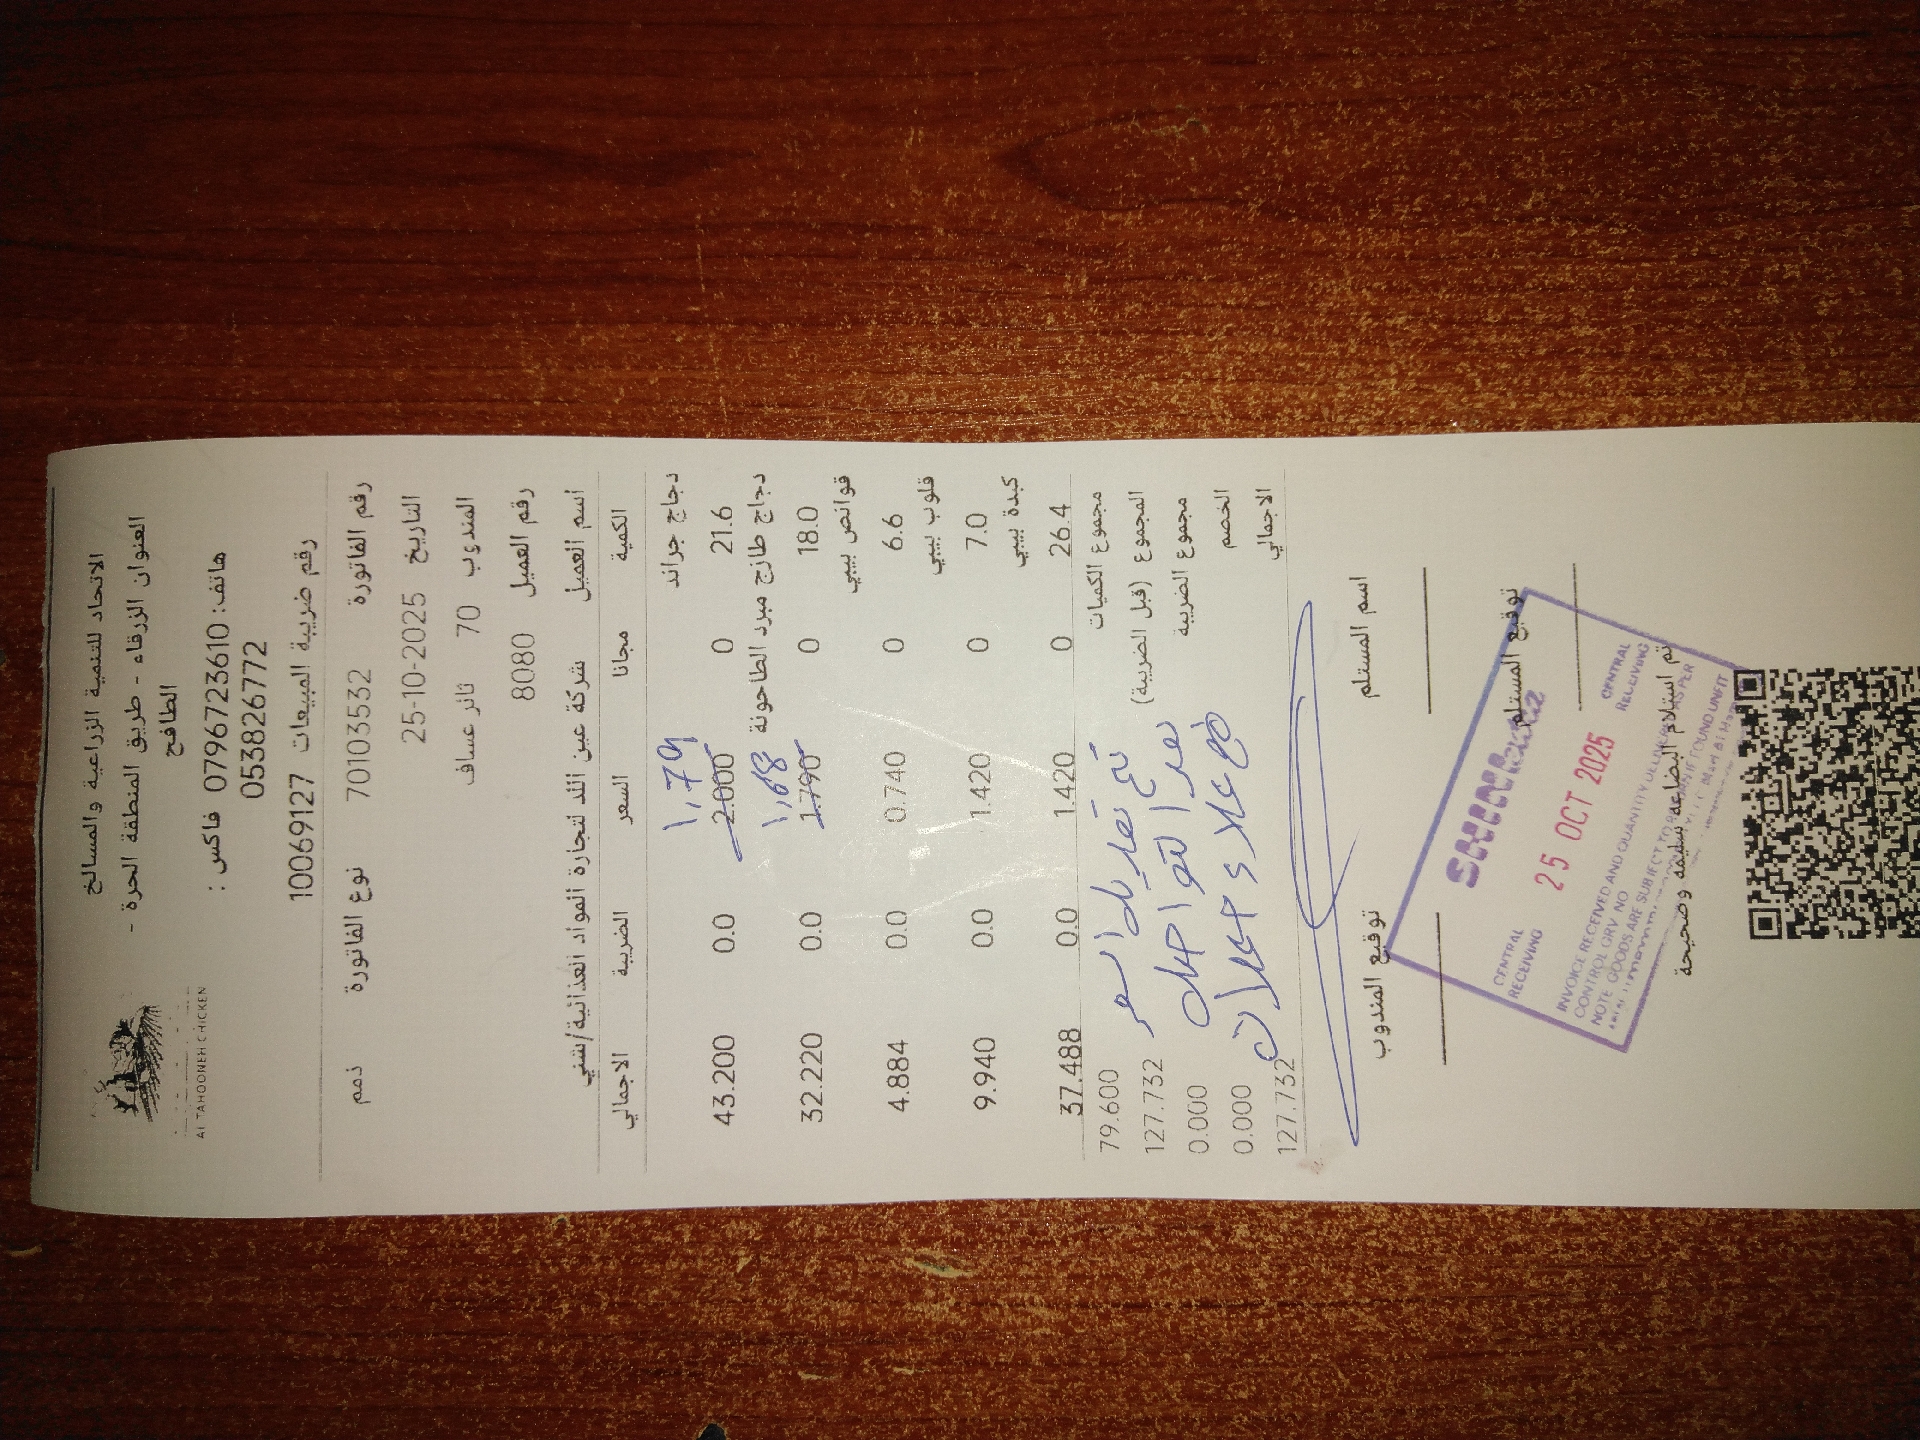 AL TAHOONEH CHICKEN
الاتحاد للتنمية الزراعية والمسالخ
العنوان الزرقاء - طريق المنطقة الحرة -
الطافح
هاتف: 0796723610 فاكس :
053826772
رقم ضريبة المبيعات 10069127
رقم الفاتورة 70103532 نوع الفاتورة ذمم
التاريخ 25-10-2025
المندوب 70 ثائر عساف
رقم العميل 8080
اسم العميل شركة عين اللد لتجارة المواد الغذائية/شني
الكمية مجانا السعر الضريبة الاجمالي
دجاج جراند 1,79
21.6 0 2.000 0.0 43.200
دجاج طازج مبرد الطاحونة 1,68
18.0 0 1.790 0.0 32.220
قوانص بيبي
6.6 0 0.740 0.0 4.884
قلوب بيبي
7.0 0 1.420 0.0 9.940
كبدة بيبي
26.4 0 1.420 0.0 37.488
مجموع الكميات 79.600
المجموع (قبل الضريبة) 127.732
مجموع الضريبة 0.000
الخصم 0.000
الاجمالي 127.732
تم تعديل السعر
بعد التواصل
علاء
اسم المستلم توقيع المندوب
توقيع المستلم
CENTRAL RECEIVING
25 OCT 2025
CENTRAL RECEIVING
INVOICE RECEIVED AND QUANTITY
CONTROL GRV NO
NOTE GOODS ARE SUBJECT TO IF FOUND UNFIT
تم استلام البضاعة سليمة وصحيحة